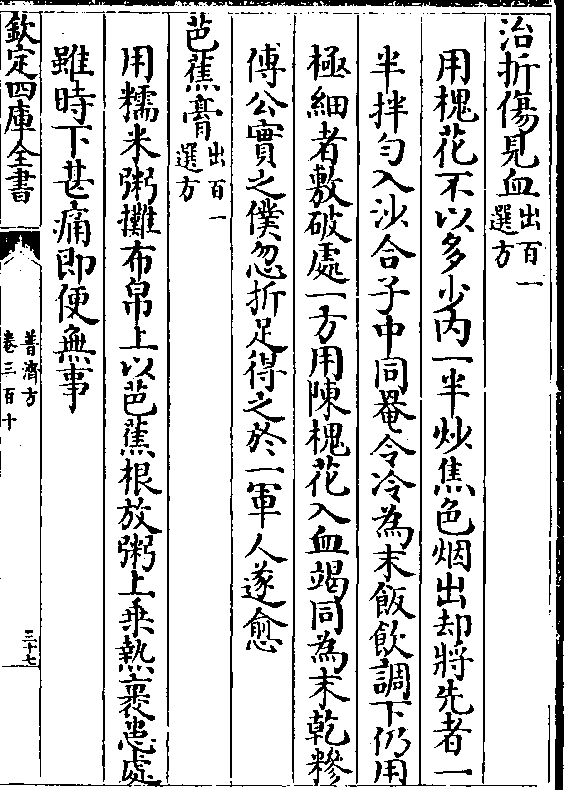 治折傷見血出百一選方
用槐花不以多少内一半炒焦色烟出却將先者一
半拌勻入沙合子中同罨令冷為末飯飲調下仍用
極細者敷破處一方用陳槐花入血竭同為末乾糝
傅公實之僕忽折足得之於一軍人遂愈
芭蕉膏出百一選方
用糯米粥攤布帛上以芭蕉根放粥上乗熱裹患處
雖時下甚痛即便無事
欽定四庫全書
普濟方
卷三百十
三十七